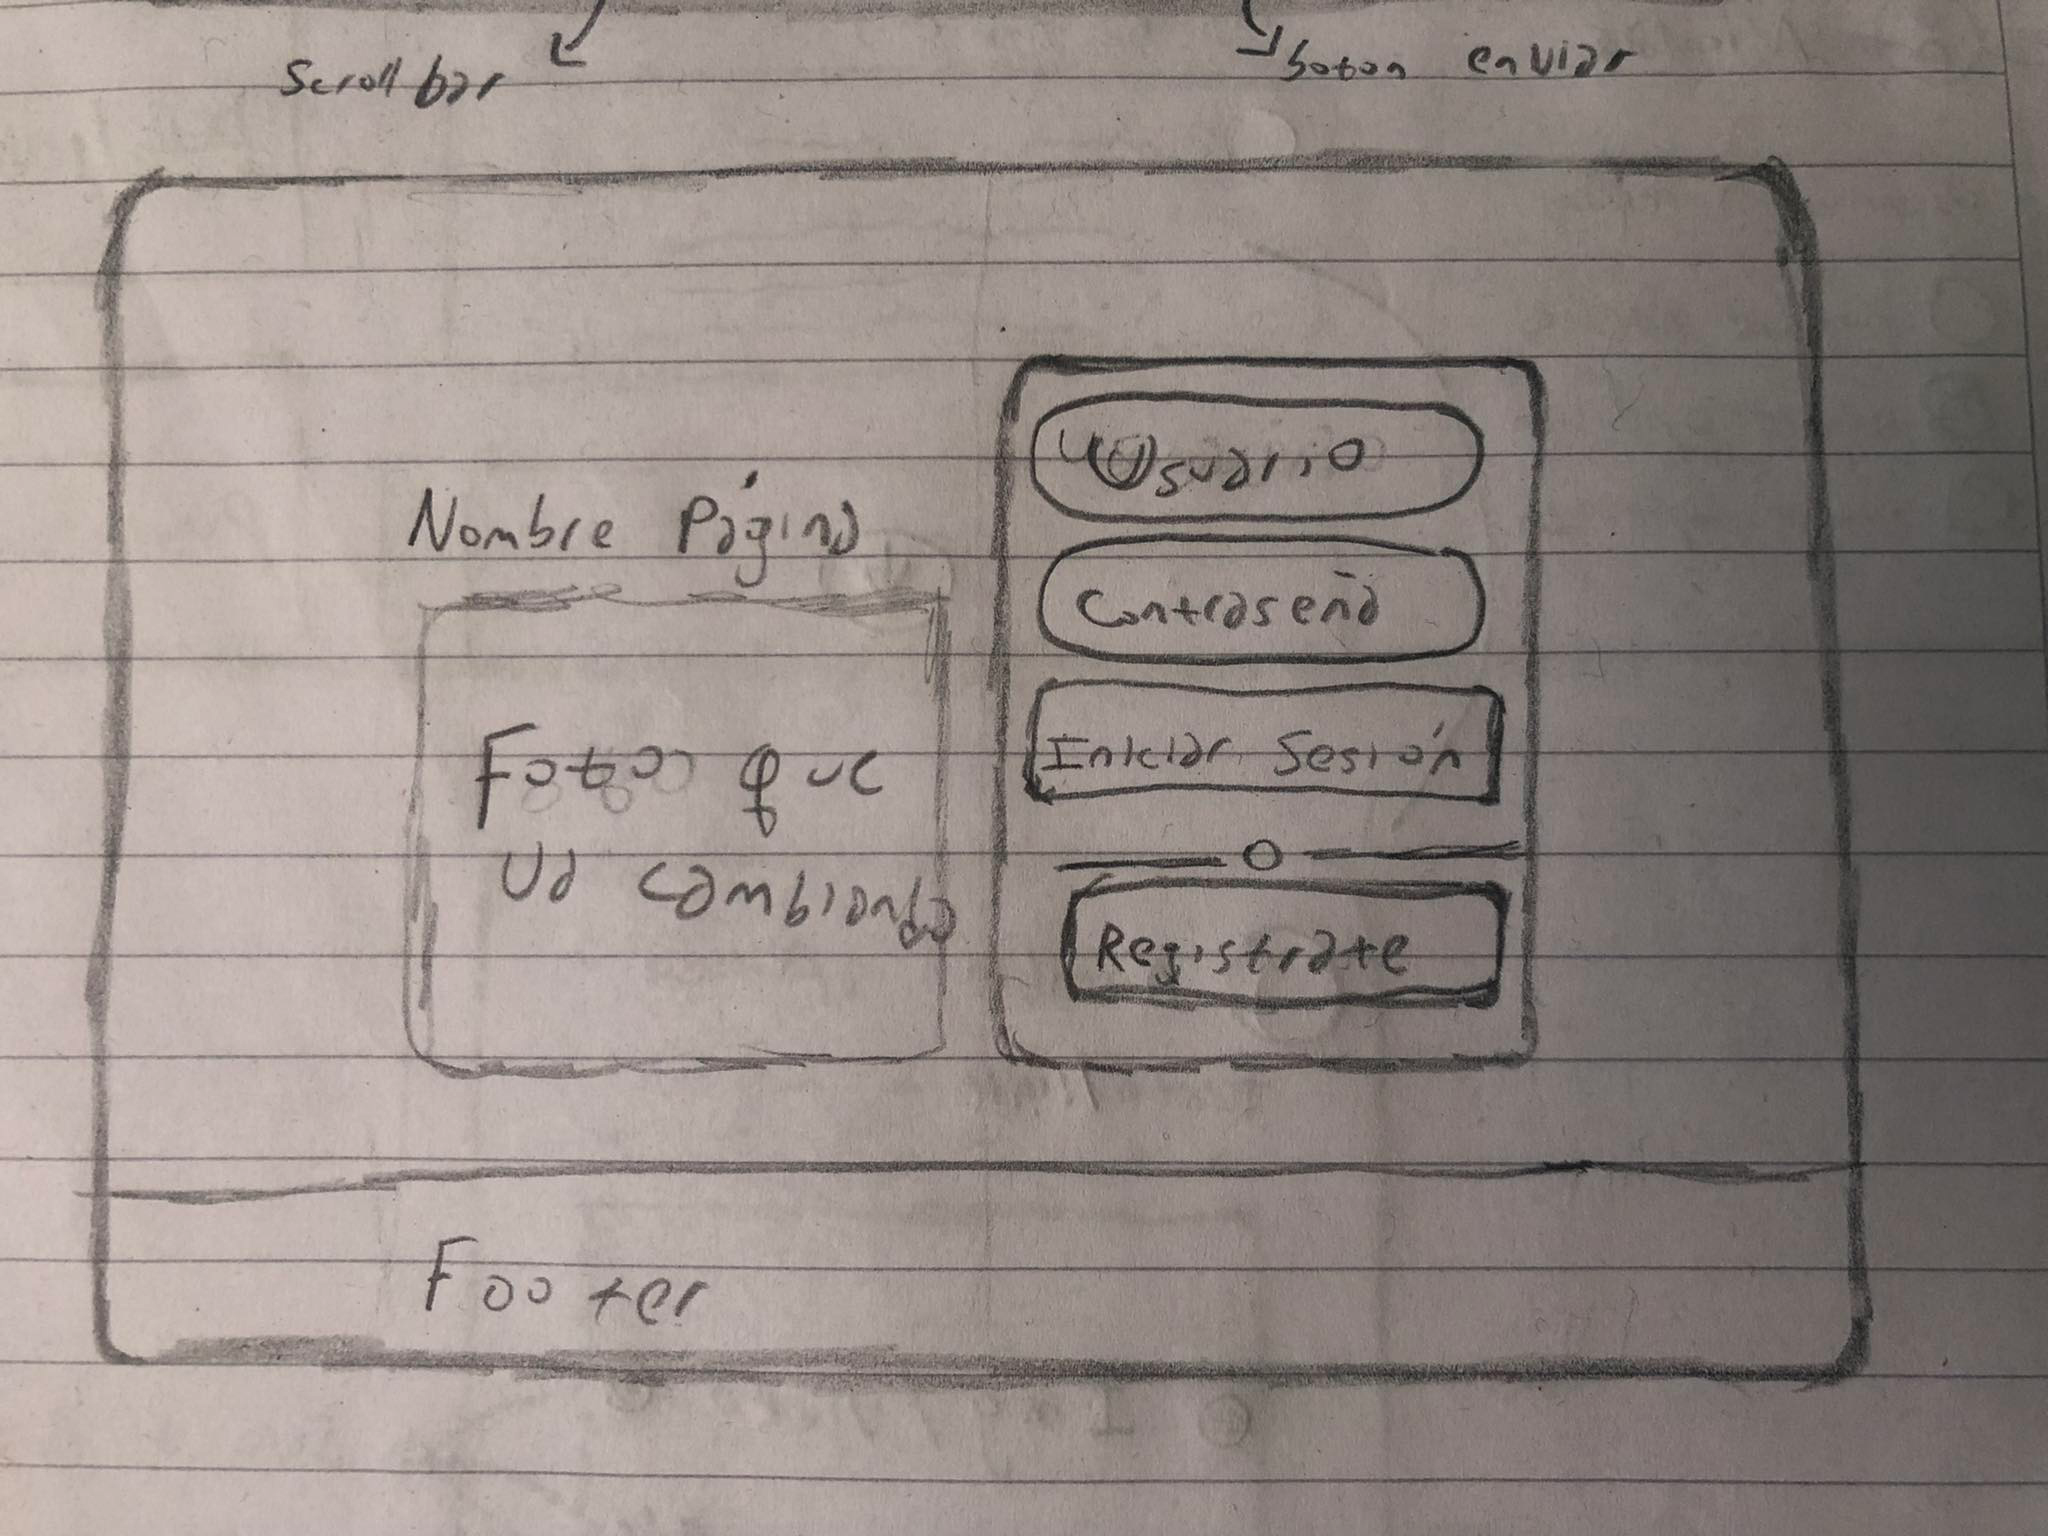 Scroll bar
boton enviar
Nombre Página
Foto que
va cambiando
Usuario
Contraseña
Iniciar Sesión
O
Registrate
Footer